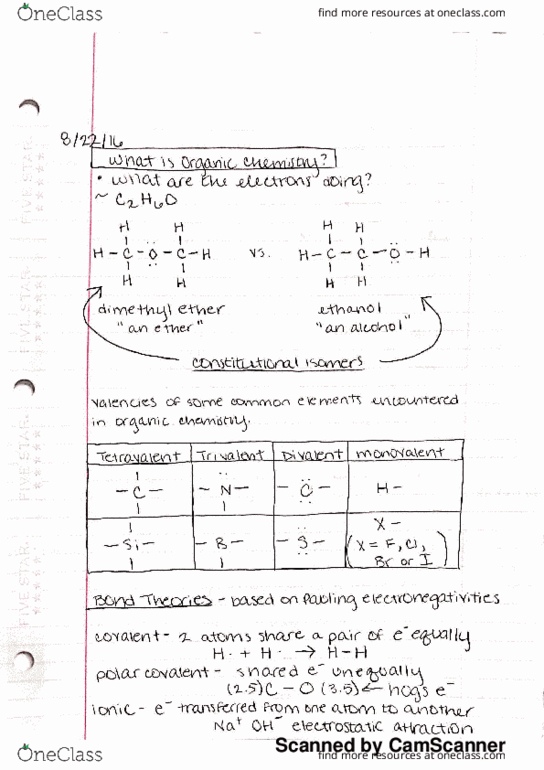 OneClass find more resources at oneclass.com
8/22/16
What is organic chemistry?
• What are the electrons doing?
~ C2H6O
H H H H
H-C-O-C-H vs. H-C-C-O-H
H H H H
dimethyl ether ethanol
"an ether" "an alcohol"
constitutional isomers
valencies of some common elements encountered
in organic chemistry.
Tetravalent Trivalent Divalent monovalent
-C- -N- -O- H-
-Si- -B- -S- X-
(X = F, Cl,
Br or I)
Bond Theories - based on Pauling electronegativities
covalent - 2 atoms share a pair of e⁻ equally
H· + H· → H-H
polar covalent - shared e⁻ unequally
(2.5)C - O (3.5) ← hogs e⁻
ionic - e⁻ transferred from one atom to another
Na⁺ OH⁻ electrostatic attraction
Scanned by CamScanner
OneClass find more resources at oneclass.com